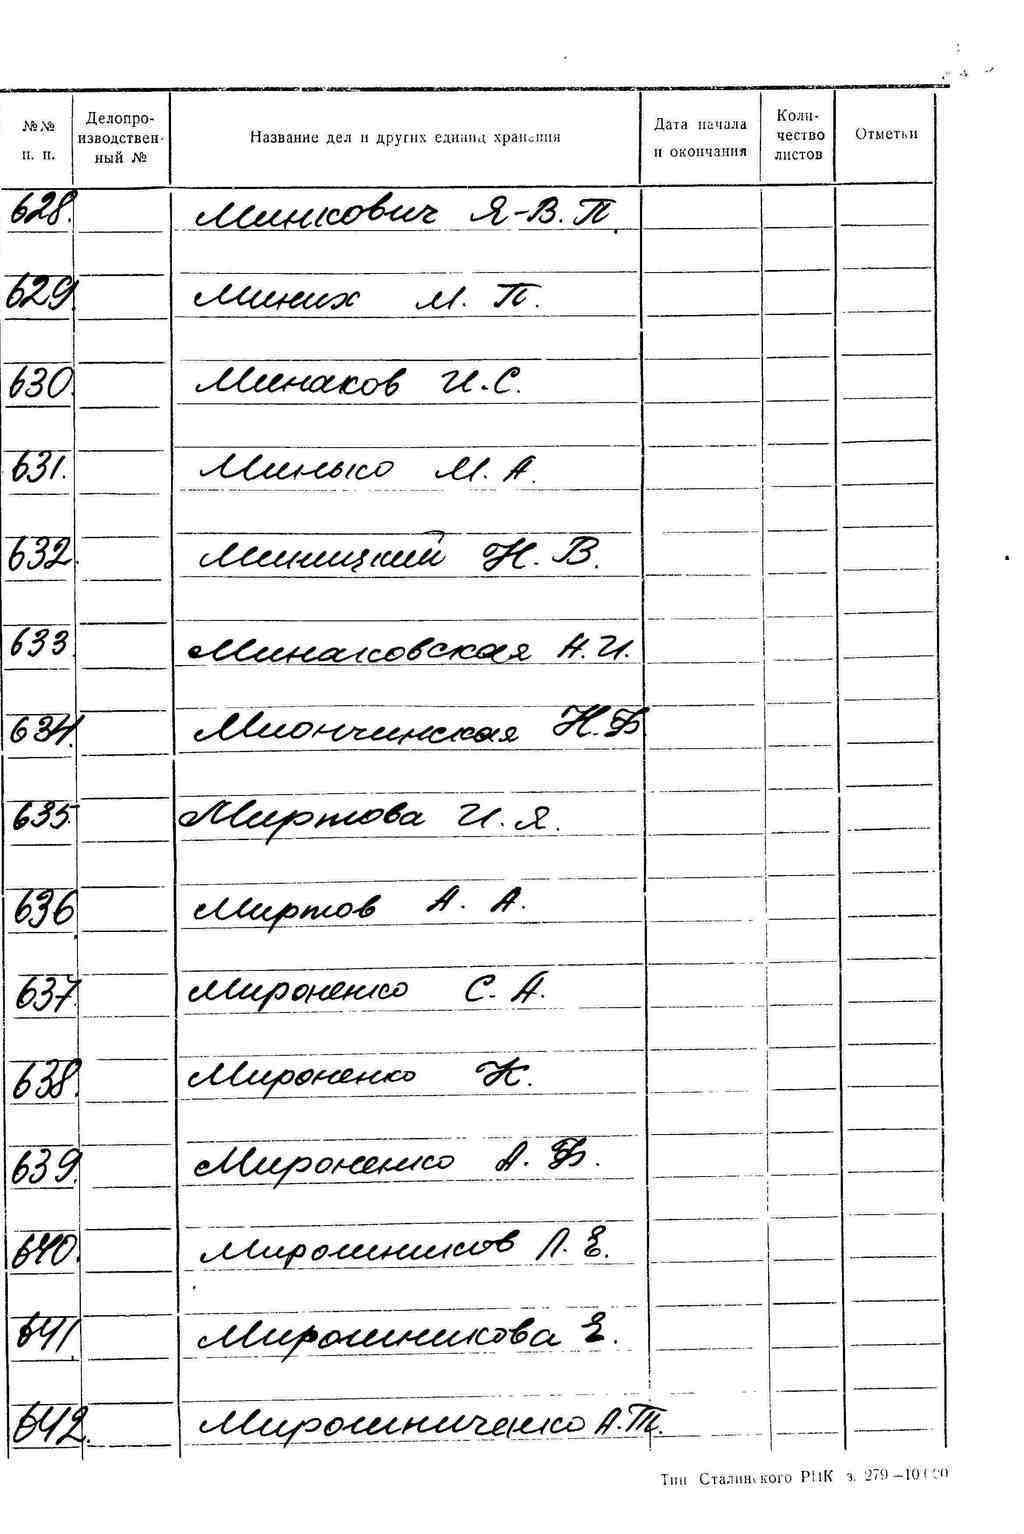 №№ п. п. Делопроизводственный № Название дел и других единиц хранения Дата начала и окончания Количество листов Отметки
628. Минкович Я-В. П.
629. Миних М. П.
630. Минаков И.С.
631. Минько М. А.
632. Миницкий Н. В.
633. Минаковская А.И.
634. Миончинская Н.Ф
635. Миртова И. Я.
636 Миртов А. А.
637. Мироненко С. А.
638. Мироненко К.
639. Мироненко А. Ф.
640. Мирошников Л. Е.
641. Мирошникова Е.
642. Мирошниченко А.Т.
Тип Сталинского РИК з. 279